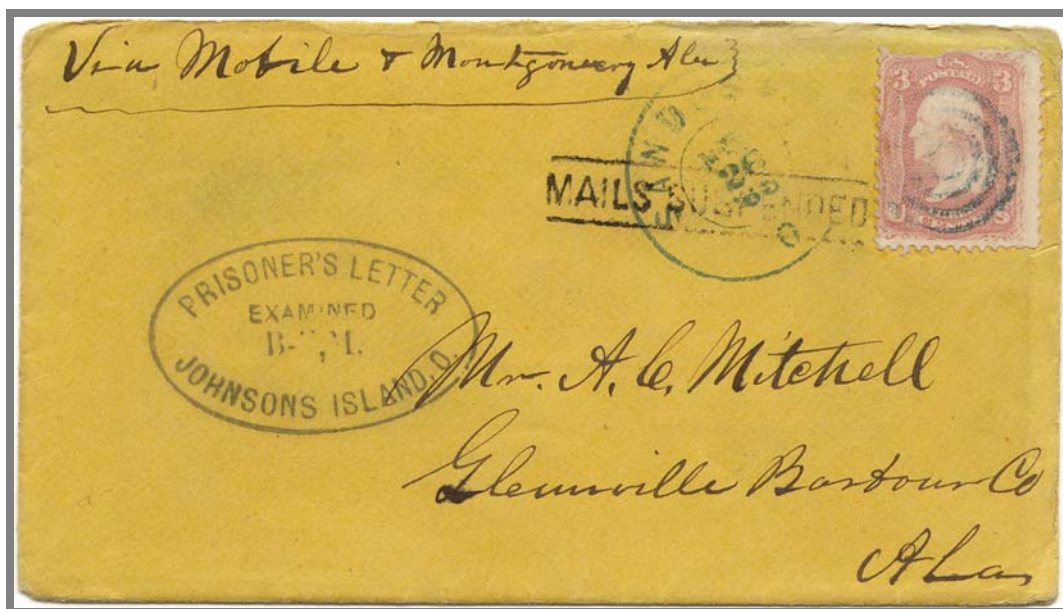 Via Mobile & Montgomery Ala
3 U.S. POSTAGE 3
U CENTS S
SAND O
23
MAILS SUSPENDED
PRISONER'S LETTER
EXAMINED
JOHNSONS ISLAND, O.
Mr. A. C. Mitchell
Glennville Barbour Co
Ala